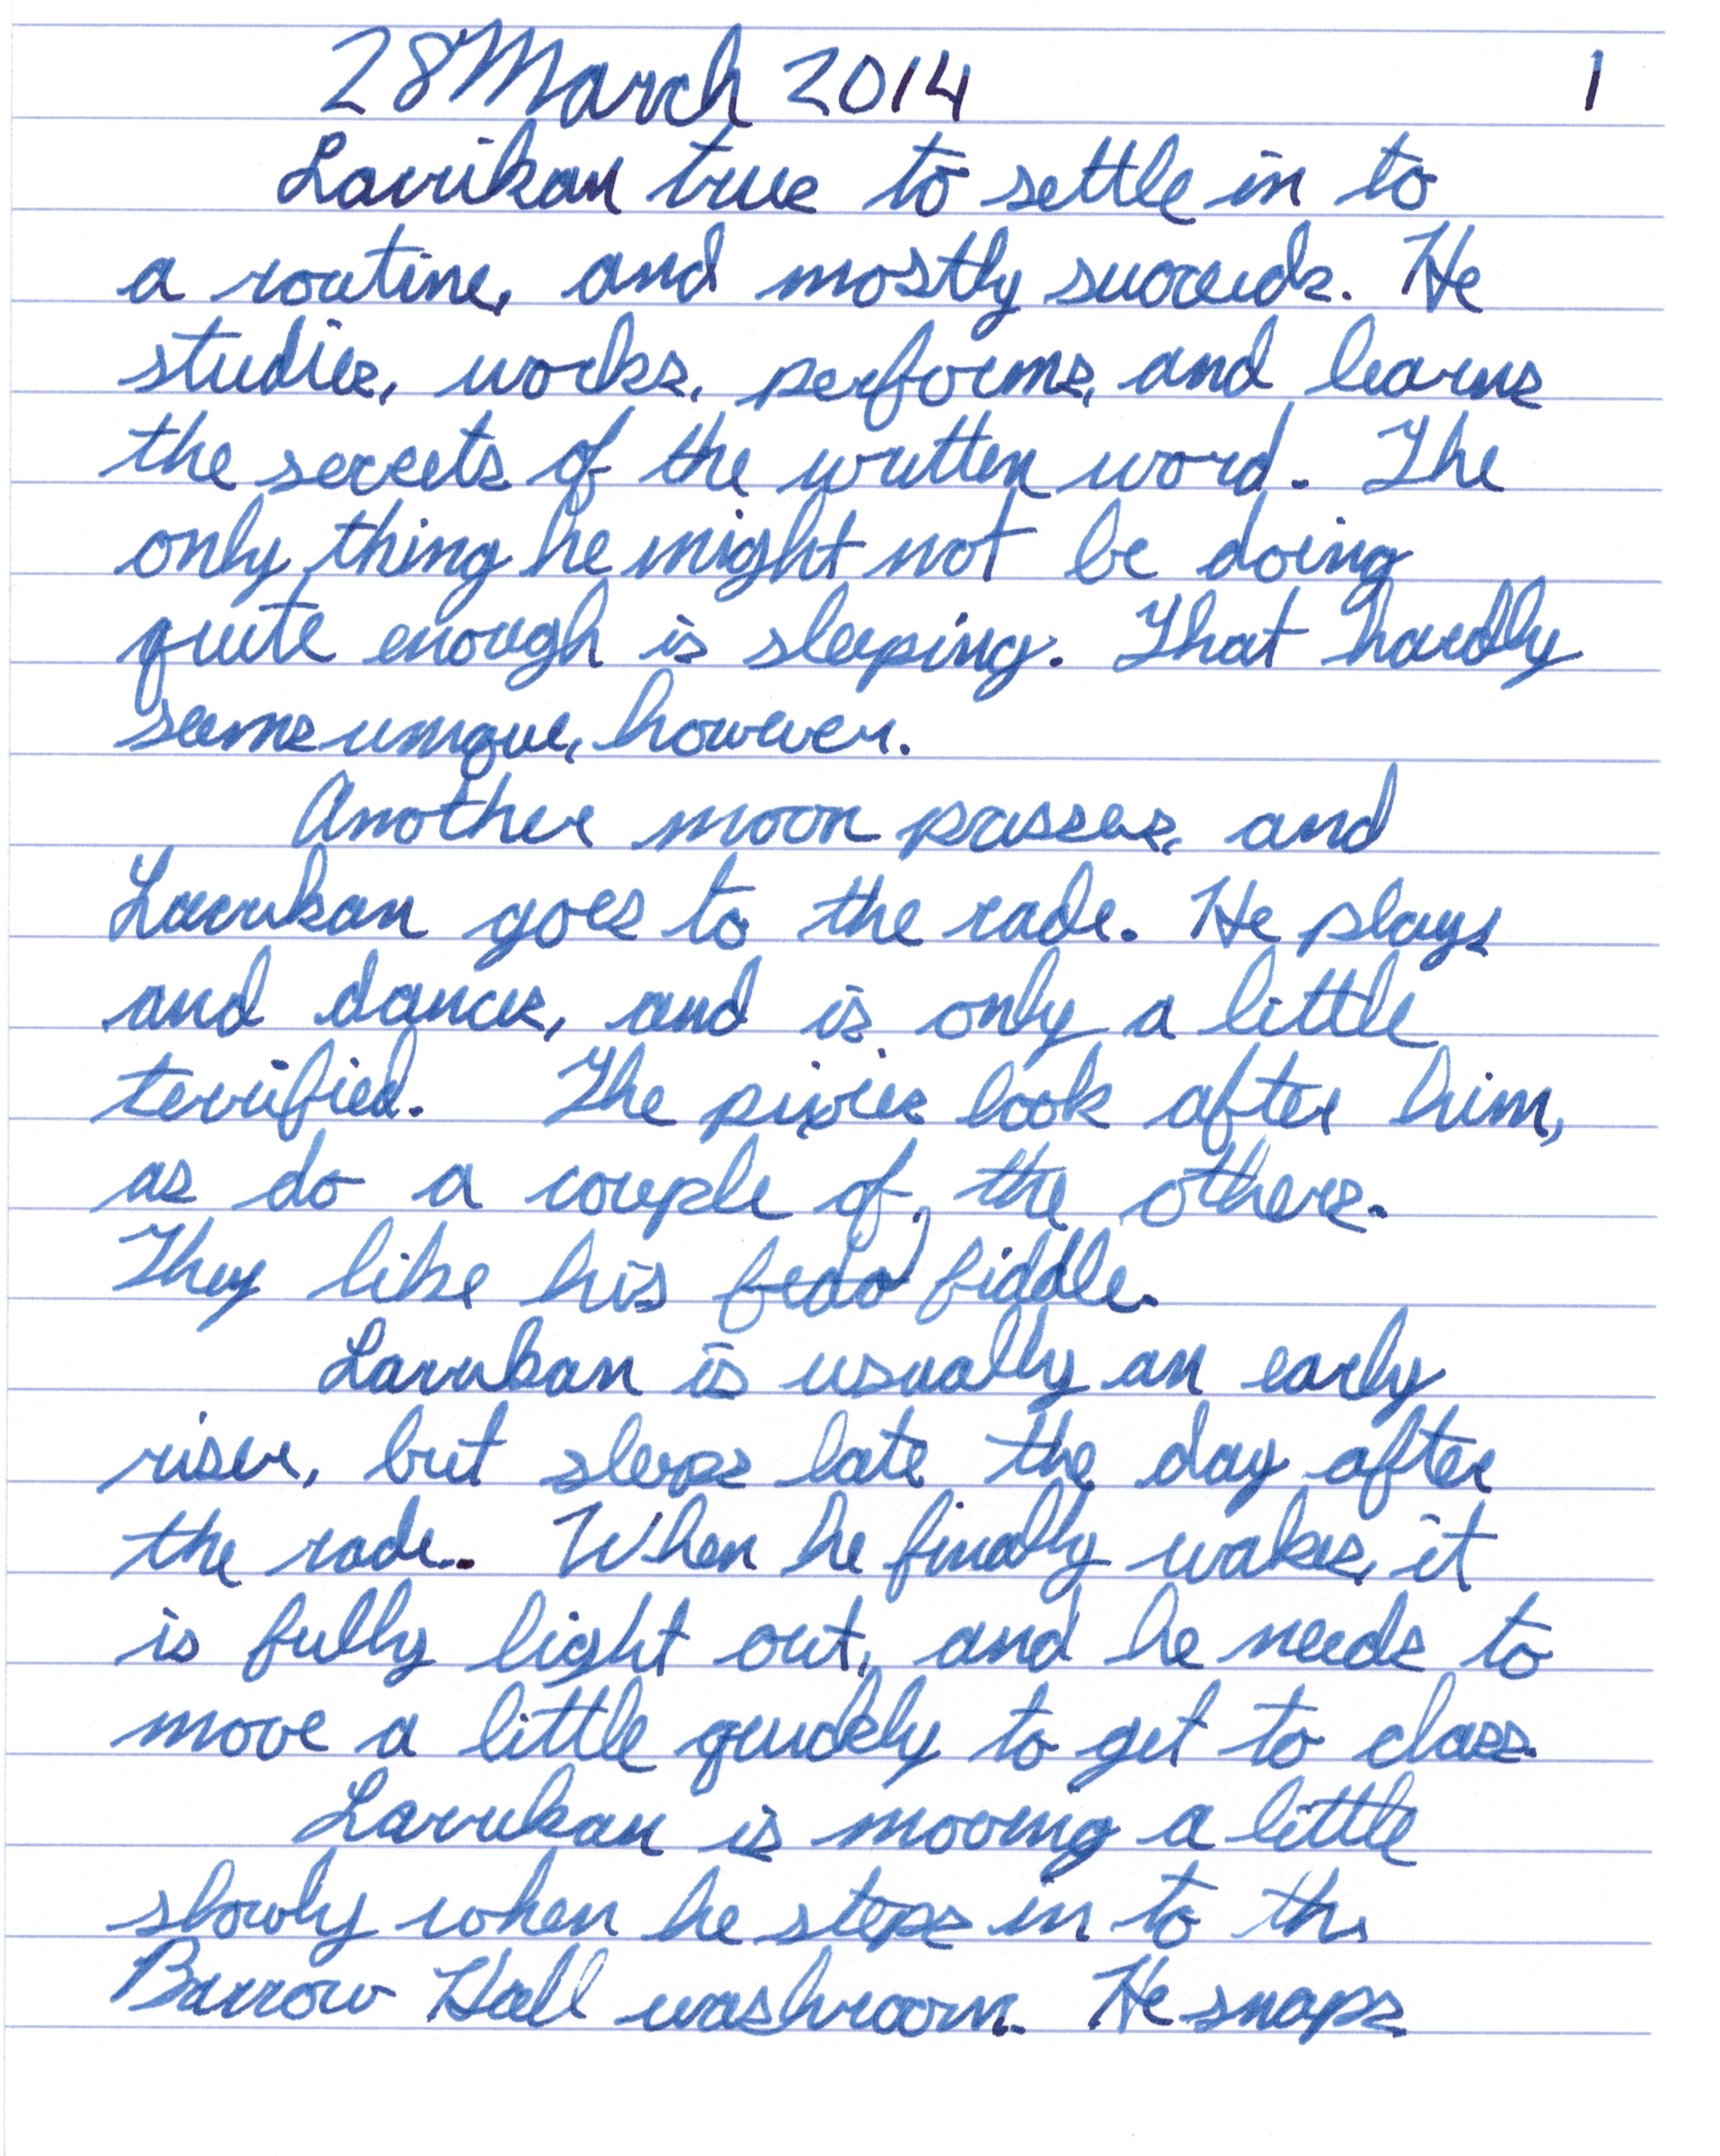 28 March 2014 1
Lavrikan tries to settle in to
a routine, and mostly succeeds. He
studies, works, performs, and learns
the secrets of the written word. The
only thing he might not be doing
quite enough is sleeping. That hardly
seems unique, however.
Another moon passes, and
Lavrikan goes to the rade. He plays
and dances, and is only a little
terrified. The pixies look after him,
as do a couple of the others.
They like his fiddle.
Lavrikan is usually an early
riser, but sleeps late the day after
the rade. When he finally wakes, it
is fully light out, and he needs to
move a little quickly to get to class.
Lavrikan is moving a little
slowly when he steps in to the
Barrow Hall washroom. He snaps